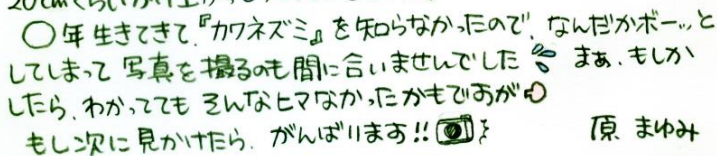 20cmくらい
○年生きてきて、『カワネズミ』を知らなかったので、なんだかボーッと
してしまって写真を撮るのも間に合いませんでした まぁ、もしか
したら、わかっててもそんなヒマなかったかもですが
もし次に見かけたら、がんばります!! 原 まゆみ